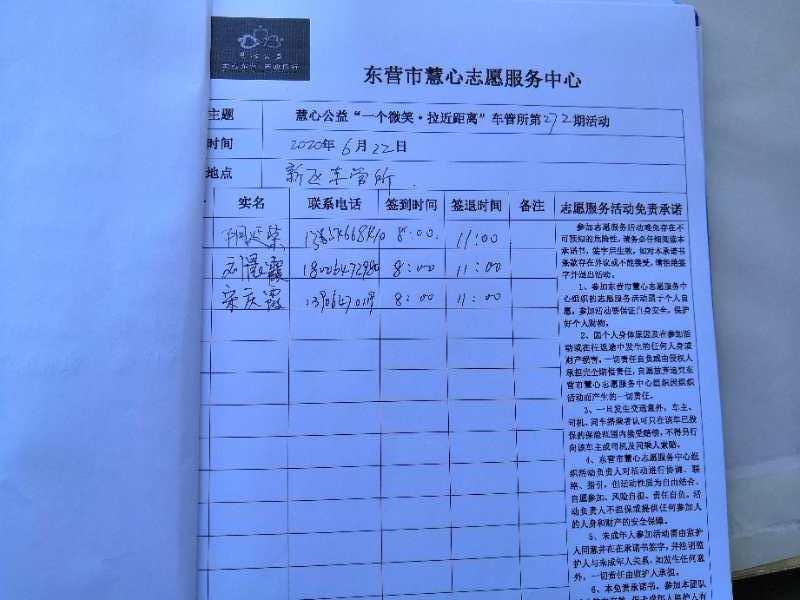 东营市慧心志愿服务中心
主题 慧心公益“一个微笑·拉近距离”车管所第272期活动
时间 2020年6月22日
地点 新区车管所
实名 联系电话 签到时间 签退时间 备注 志愿服务活动免责承诺
8:00 11:00
8:00 11:00
宋庆霞 8:00 11:00
参加志愿服务活动难免存在不
可预知的危险性,请务必仔细阅读本
承诺书,签字后生效,如对本承诺书
条款存在异议或不能接受,请拒绝签
字并退出活动。
1、参加东营市慧心志愿服务中
心组织的志愿服务活动属于个人自
愿,参加活动要保证自身安全,保护
好个人财物。
2、因个人身体原因及在参加活
动或在往返途中发生的任何人身或
财产损害,一切责任自负或由侵权人
承担完全赔偿责任,自愿放弃追究东
营市慧心志愿服务中心组织因组织
活动而产生的一切责任。
3、一旦发生交通意外,车主、
司机、同车搭乘者认可只在该车已投
保的保险范围内接受赔偿,不得另行
向该车主或司机及同乘人索赔。
4、东营市慧心志愿服务中心组
织活动负责人对活动进行协调、联
络、指引,但活动性质为自由结合、
自愿参加、风险自担、责任自负。活
动负责人不担保或提供任何参加人
的人身和财产的安全保障。
5、未成年人参加活动需由监护
人同意并在在承诺书签字,并注明监
护人与未成年人关系,如发生任何意
外,一切责任由监护人承担。
6、本免责承诺书,参加本团队